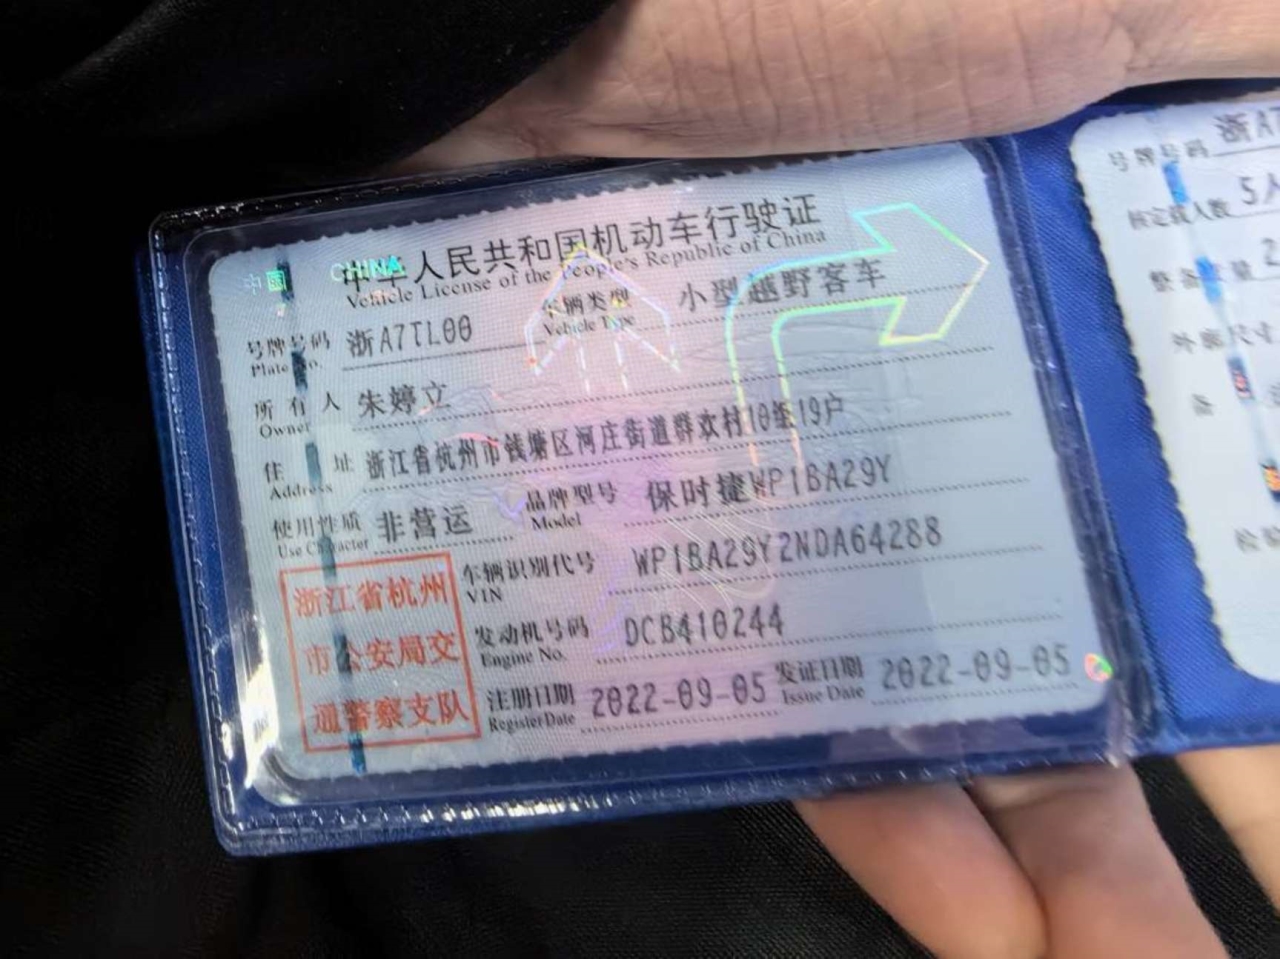 中国 CHINA
中华人民共和国机动车行驶证
Vehicle License of the People's Republic of China
号牌号码 浙A7TL00 车辆类型 小型越野客车
Plate No. Vehicle Type
所有人 朱婷立
Owner
住址 浙江省杭州市钱塘区河庄街道群欢村10组19户
Address
使用性质 非营运 品牌型号 保时捷WP1BA29Y
Use Character Model
浙江省杭州
市公安局交
通警察支队
车辆识别代号 WP1BA29Y2NDA64288
VIN
发动机号码 DCB410244
Engine No.
注册日期 2022-09-05 发证日期 2022-09-05
Register Date Issue Date
号牌号码 浙A7
核定载人数 5人
整备质量 2
外廓尺寸
备
检验